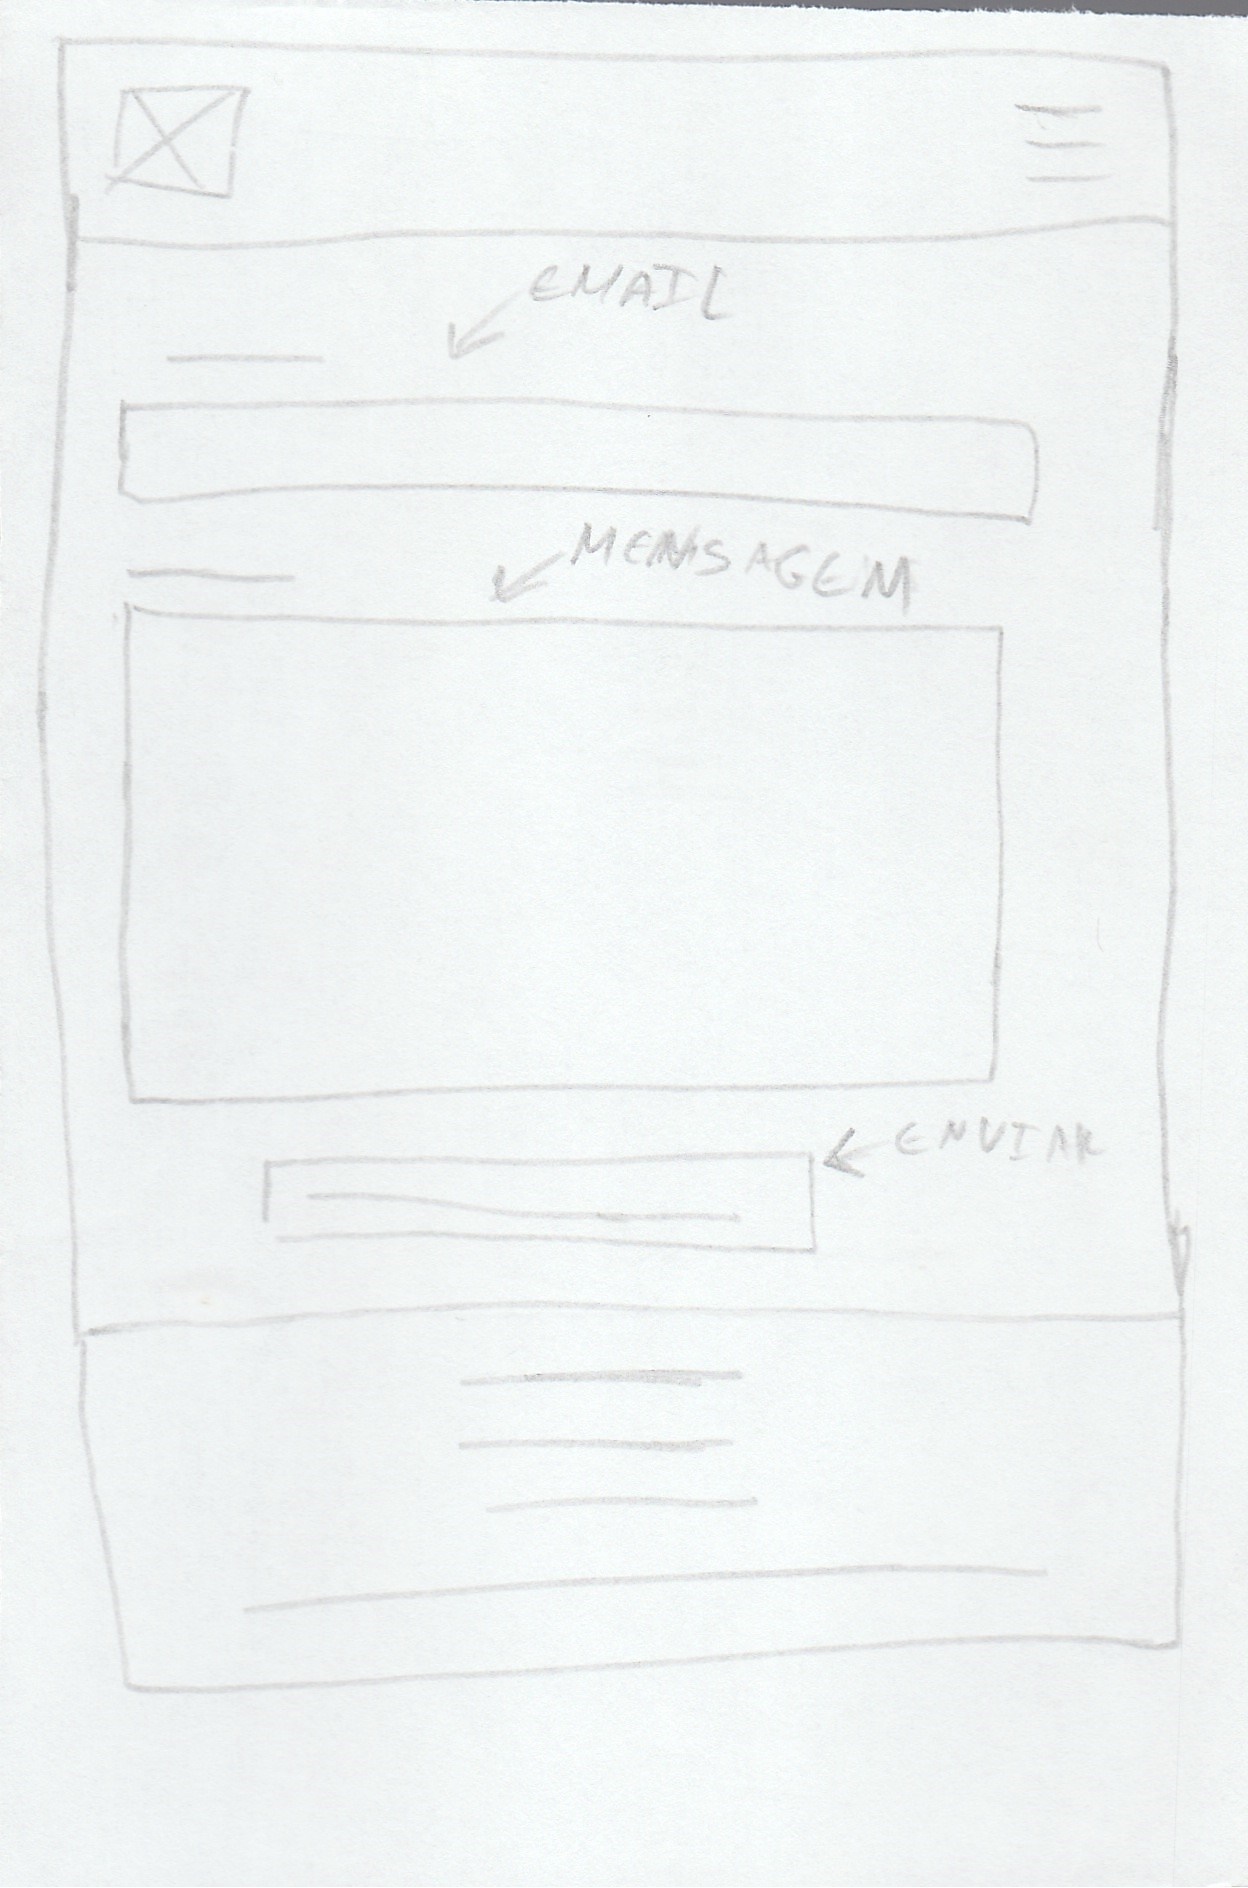 EMAIL
MENSAGEM
ENVIAR